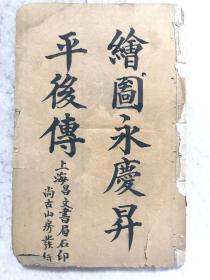 繪圖永慶昇
平後傳
上海昌文書局石印
尚古山房發行